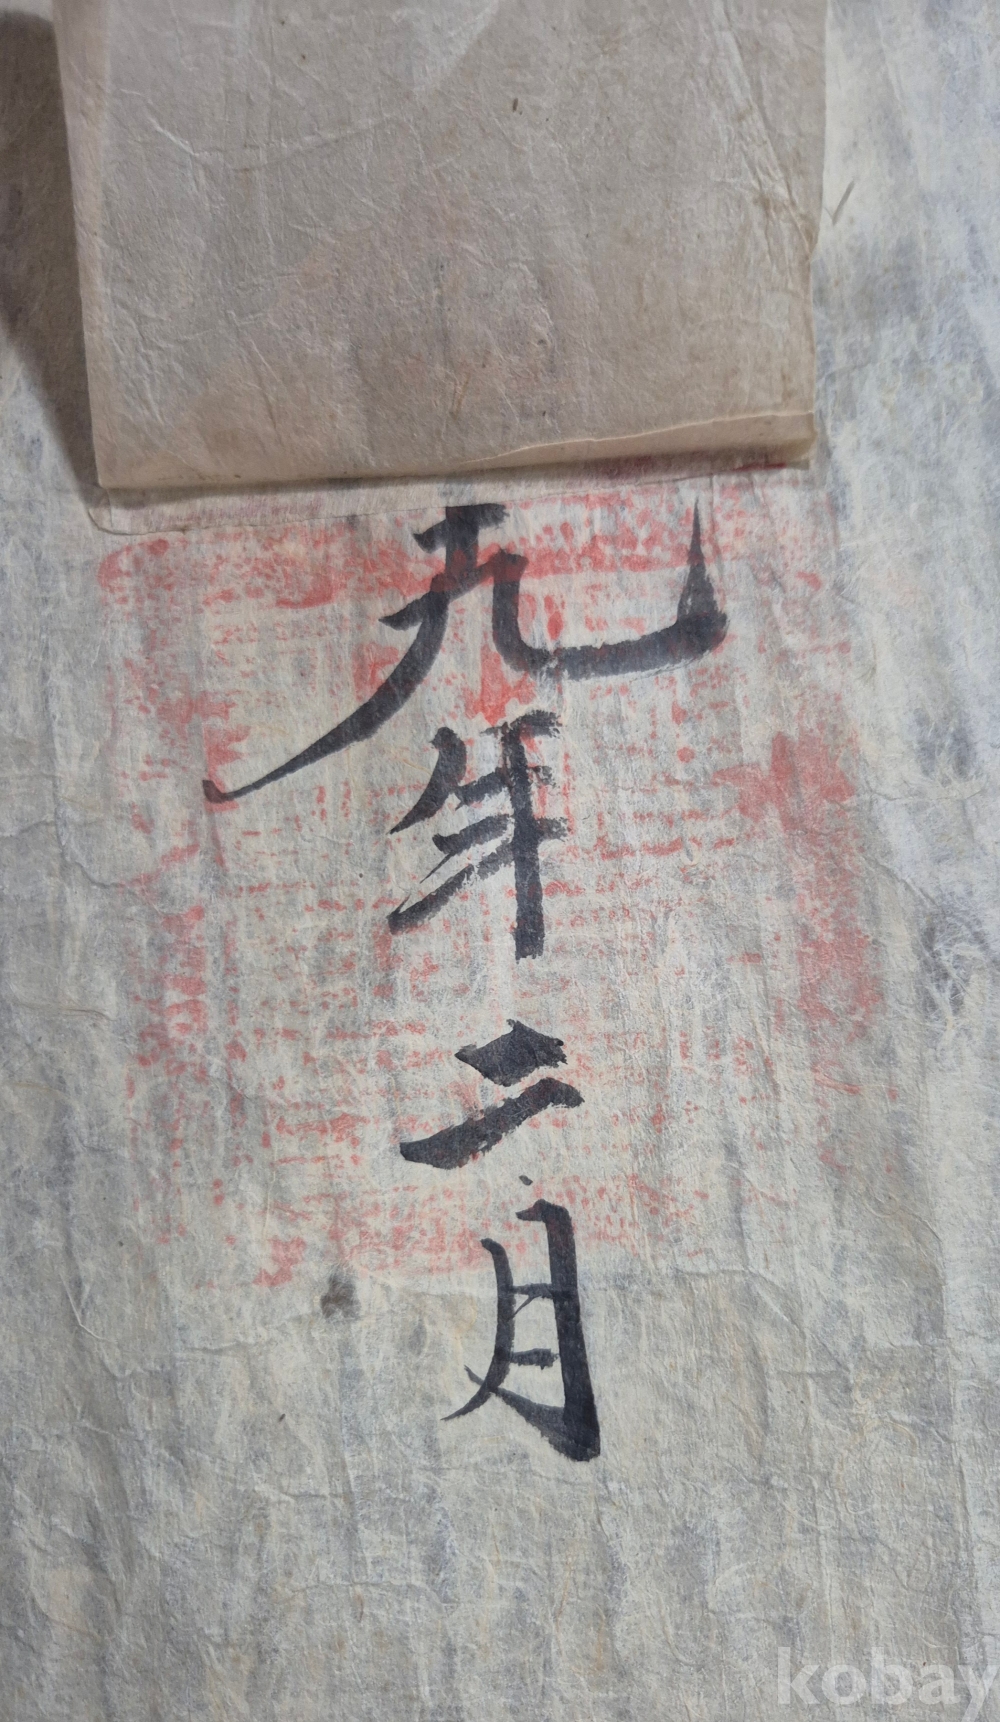 九年二月
kobay